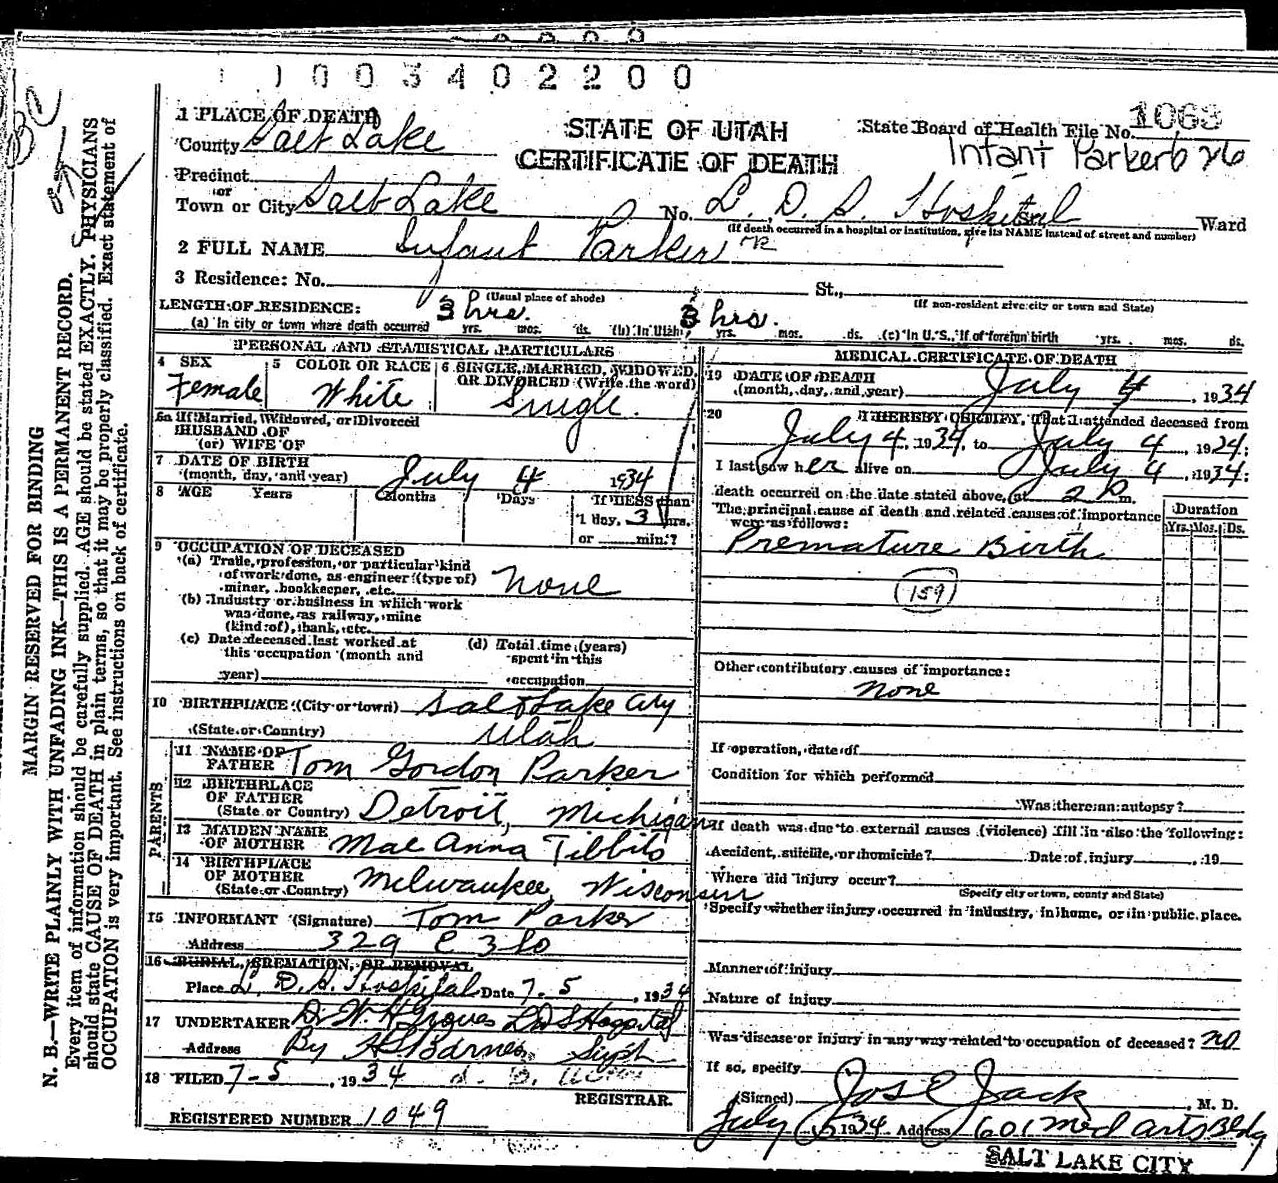 1003402200
1 PLACE OF DEATH
County Salt Lake
STATE OF UTAH
CERTIFICATE OF DEATH
State Board of Health File No. 1063
Infant Parker 626
Precinct
or
Town or City Salt Lake No. L. D. S. Hospital Ward
(If death occurred in a hospital or institution, give its NAME instead of street and number)
2 FULL NAME Infant Parker
3 Residence: No. St.,
(Usual place of abode) (If non-resident give city or town and State)
LENGTH OF RESIDENCE: 3 hrs. 3 hrs.
(a) In city or town where death occurred yrs. mos. ds. (b) In Utah, yrs. mos. ds. (c) In U.S., if of foreign birth yrs. mos. ds.
PERSONAL AND STATISTICAL PARTICULARS
4 SEX Female
5 COLOR OR RACE White
6 SINGLE, MARRIED, WIDOWED, OR DIVORCED (Write the word) Single.
6a If Married, Widowed, or Divorced
HUSBAND OF
(or) WIFE OF
7 DATE OF BIRTH
(month, day, and year) July 4 1934
8 AGE Years Months Days If LESS than
1 day, 3 hrs.
or min.?
9 OCCUPATION OF DECEASED
(a) Trade, profession, or particular kind
of work done, as engineer (type of)
miner, bookkeeper, etc. None
(b) Industry or business in which work
was done, as railway, mine
(kind of), bank, etc.
(c) Date deceased last worked at
this occupation (month and
year)
(d) Total time (years)
spent in this
occupation
10 BIRTHPLACE (City or town) Salt Lake City
(State or Country) Utah
PARENTS
11 NAME OF
FATHER Tom Gordon Parker
12 BIRTHPLACE
OF FATHER
(State or Country) Detroit, Michigan
13 MAIDEN NAME
OF MOTHER Mae Anna Tibbits
14 BIRTHPLACE
OF MOTHER
(State or Country) Milwaukee, Wisconsin
15 INFORMANT (Signature) Tom Parker
Address 329 E 3 So
16 BURIAL, CREMATION, OR REMOVAL
Place L. D. S. Hospital Date 7-5, 1934
17 UNDERTAKER Dr W H Groves LDS Hospital
Address By H S Barnes, Supt
18 FILED 7-5, 1934
REGISTRAR.
REGISTERED NUMBER 1049
MEDICAL CERTIFICATE OF DEATH
19 DATE OF DEATH
(month, day, and year) July 4, 1934
20 I HEREBY CERTIFY, That I attended deceased from
July 4, 1934, to July 4, 1924;
I last saw her alive on July 4, 1934;
death occurred on the date stated above, at 2 P m.
The principal cause of death and related causes of importance
were as follows:
Duration
Yrs. Mos. Ds.
Premature Birth
159
Other contributory causes of importance:
None
If operation, date of
Condition for which performed
Was there an autopsy?
If death was due to external causes (violence) fill in also the following:
Accident, suicide, or homicide? Date of injury , 19
Where did injury occur?
(Specify city or town, county and State)
Specify whether injury occurred in industry, in home, or in public place.
Manner of injury
Nature of injury
Was disease or injury in any way related to occupation of deceased? no
If so, specify
(Signed) Jos E Jack, M. D.
July 5 1934 Address 601 Med Arts Bldg
SALT LAKE CITY
MARGIN RESERVED FOR BINDING
N. B.—WRITE PLAINLY WITH UNFADING INK—THIS IS A PERMANENT RECORD.
Every item of information should be carefully supplied. AGE should be stated EXACTLY. PHYSICIANS
should state CAUSE OF DEATH in plain terms, so that it may be properly classified. Exact statement of
OCCUPATION is very important. See instructions on back of certificate.